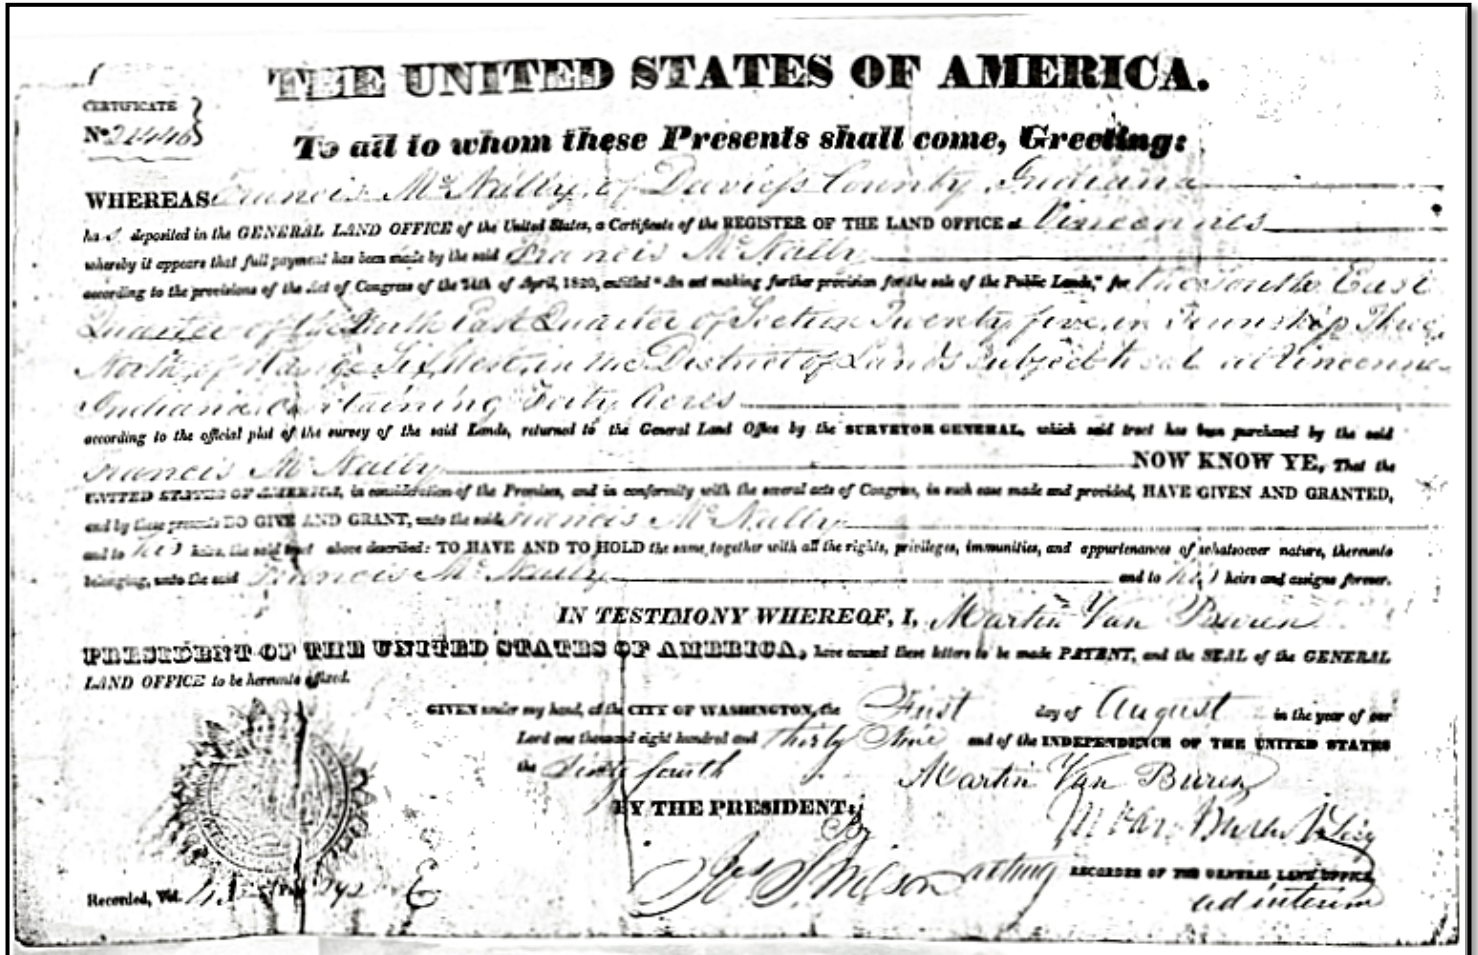 THE UNITED STATES OF AMERICA.
CERTIFICATE
No. 21446
To all to whom these Presents shall come, Greeting:
WHEREAS Francis McNally, of Daviess County Indiana
ha s deposited in the GENERAL LAND OFFICE of the United States, a Certificate of the REGISTER OF THE LAND OFFICE at Vincennes
whereby it appears that full payment has been made by the said Francis McNally
according to the provisions of the Act of Congress of the 24th of April, 1820, entitled "An act making further provision for the sale of the Public Lands," for the South East
Quarter of the North East Quarter of Section Twenty five, in Township Three
North, of Range Six West, in the District of Lands subject to sale at Vincennes
Indiana, containing Forty Acres
according to the official plat of the survey of the said Lands, returned to the General Land Office by the SURVEYOR GENERAL, which said tract has been purchased by the said
Francis McNally NOW KNOW YE, That the
UNITED STATES OF AMERICA, in consideration of the Premises, and in conformity with the several acts of Congress, in such case made and provided, HAVE GIVEN AND GRANTED,
and by these presents DO GIVE AND GRANT, unto the said Francis McNally
and to his heirs, the said tract above described: TO HAVE AND TO HOLD the same, together with all the rights, privileges, immunities, and appurtenances of whatsoever nature, thereunto
belonging, unto the said Francis McNally and to his heirs and assigns forever.
IN TESTIMONY WHEREOF, I, Martin Van Buren
PRESIDENT OF THE UNITED STATES OF AMERICA, have caused these letters to be made PATENT, and the SEAL of the GENERAL
LAND OFFICE to be hereunto affixed.
GIVEN under my hand, at the CITY OF WASHINGTON, the First day of August in the year of our
Lord one thousand eight hundred and thirty Nine and of the INDEPENDENCE OF THE UNITED STATES
the Sixty fourth Martin Van Buren
BY THE PRESIDENT:
By M Van Buren Jr Secy
Jos S. Wilson acting RECORDER OF THE GENERAL LAND OFFICE,
ad interim
Recorded, Vol. 41